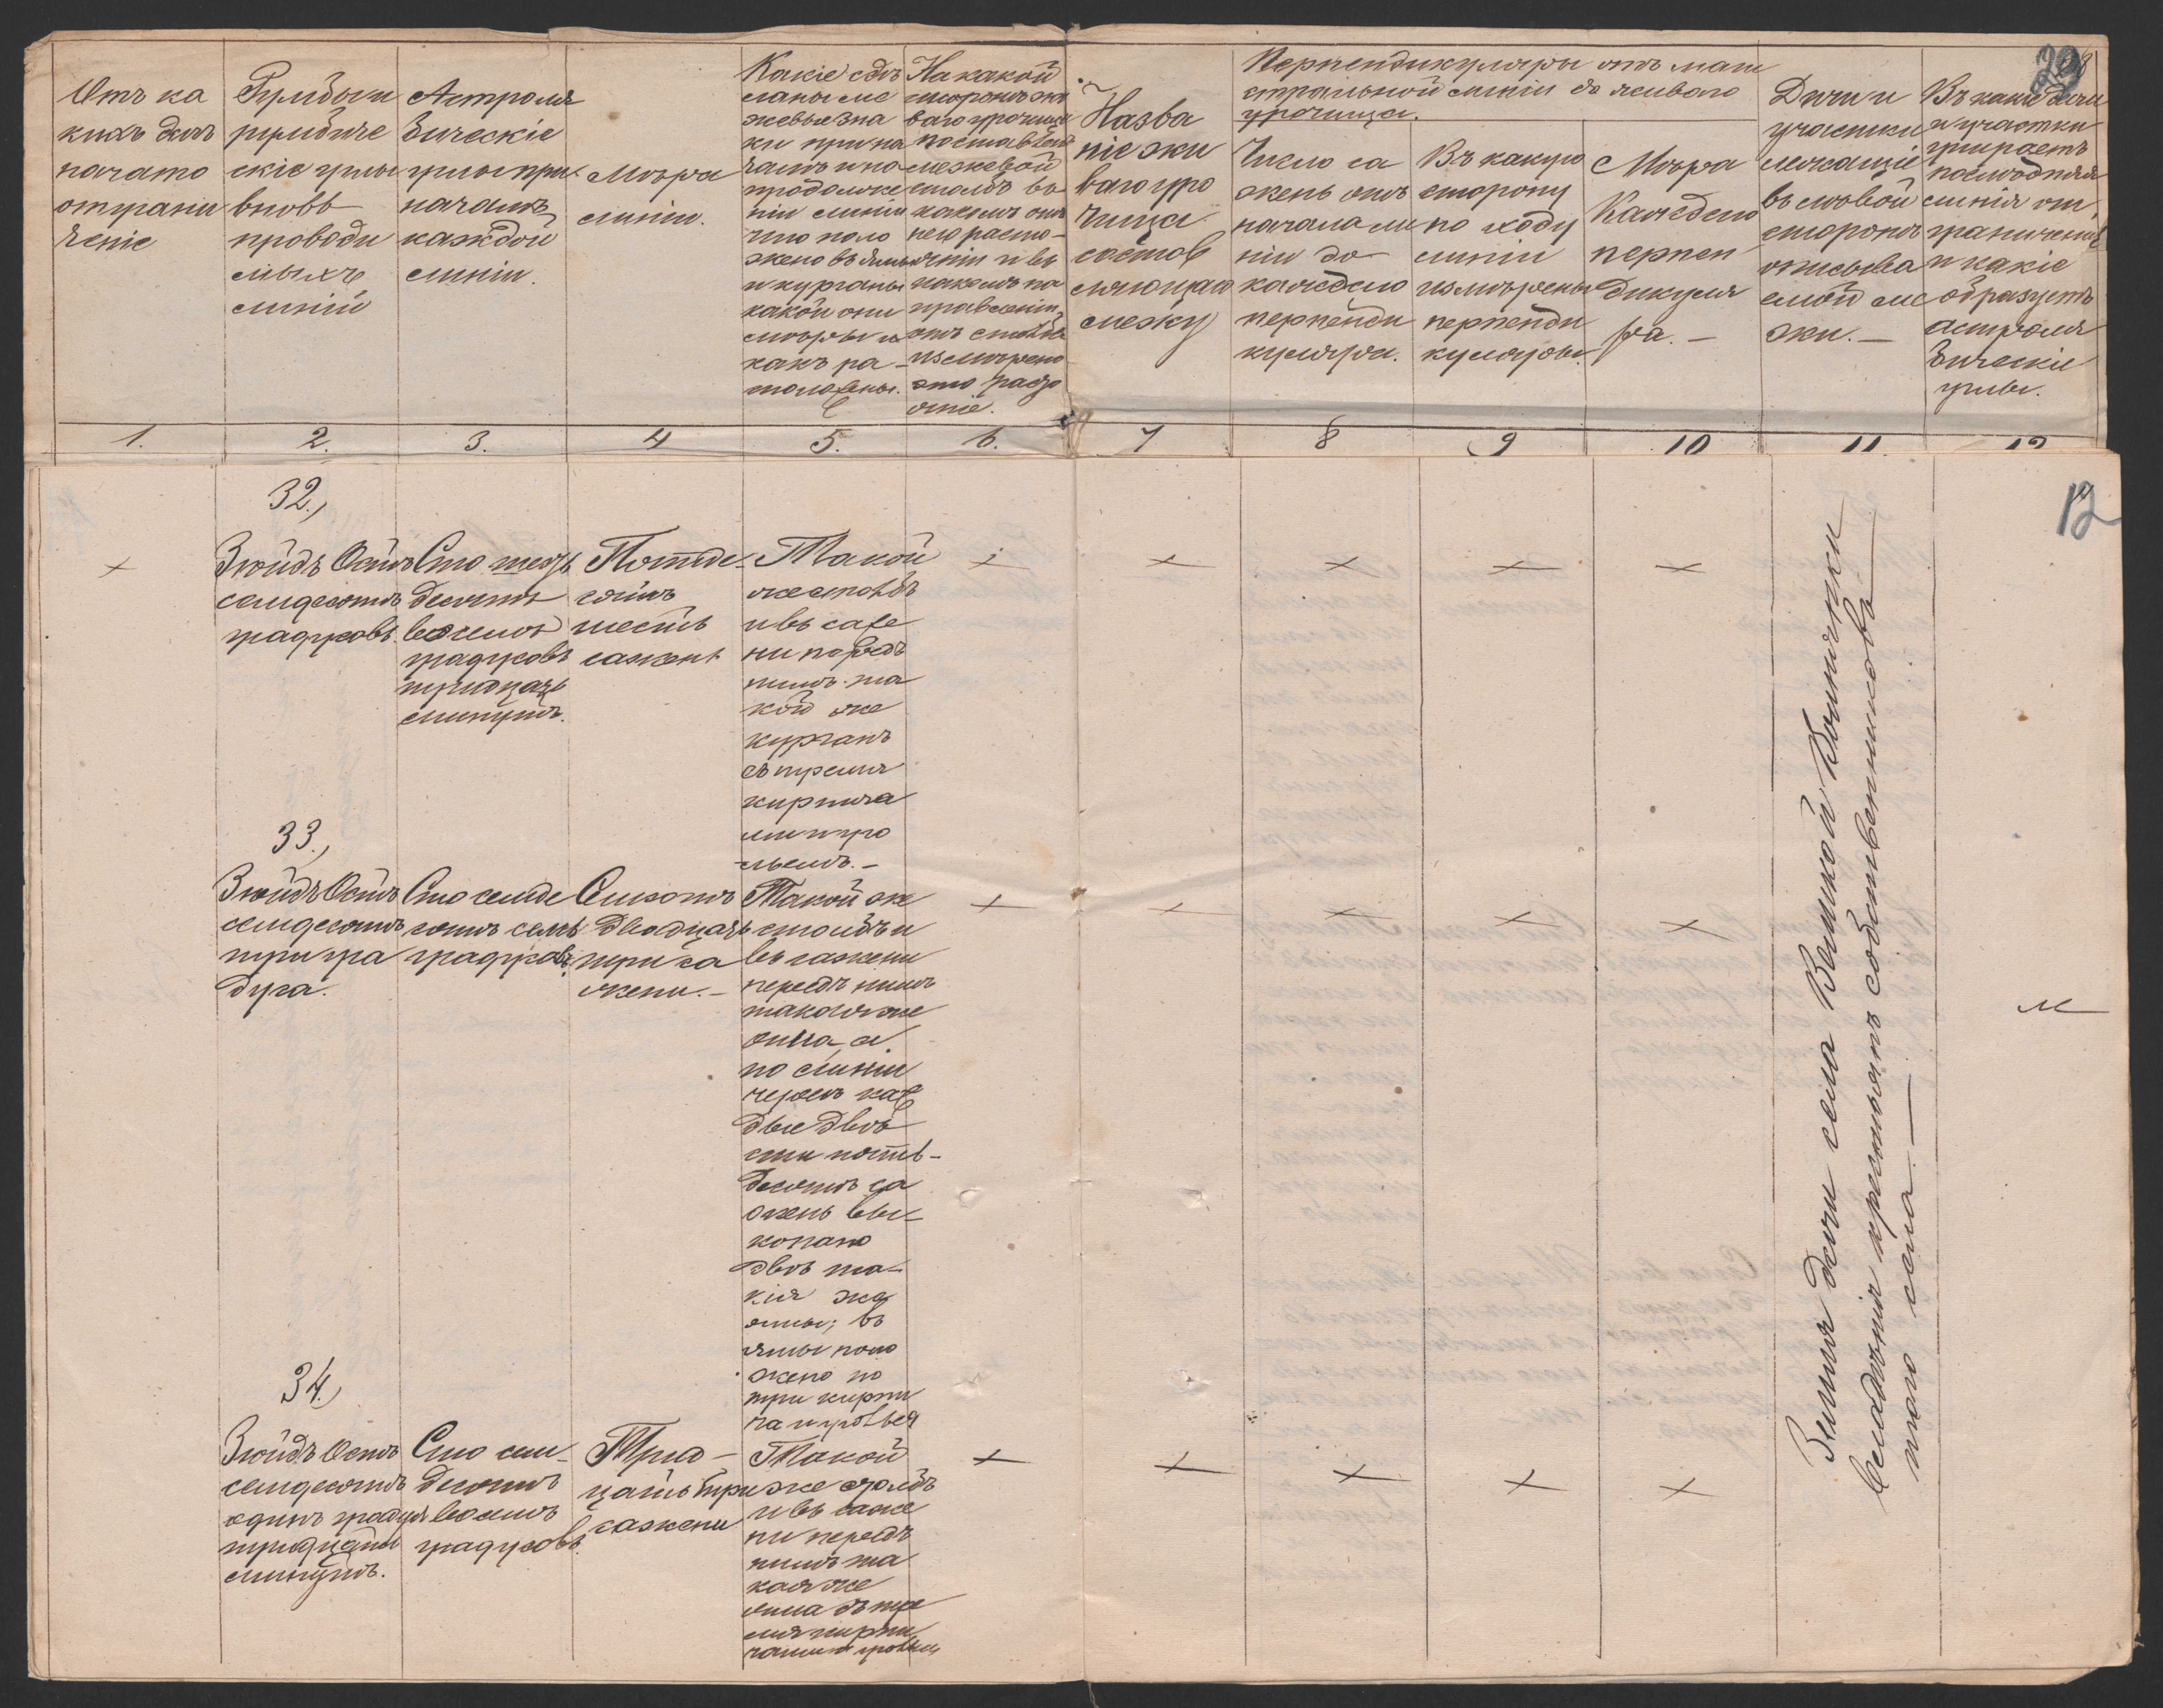 Отъ ка
кихъ дачъ
начато
отграни
ченіе
Румбы и
румбиче
скіе углы
вновь
проводи
мыхъ
линій
Астроля
бическіе
углы при
началѣ
каждой
линіи.
Мѣра
линіи.
Какіе сдѣ
ланы ме
жевые зна
ки при на
чалѣ и на
продолже
ніи линіи
что поло
жено въ ямы
и курганы
какой они
мѣры и
какъ ра-
положены.
На какой
сторонѣ жи
ваго урочища
поставленъ
межевой
столбъ во
какомъ отъ
него разсто-
яніи и въ
какомъ на
правленіи
отъ столба
измѣрено
это разсто
яніе.
Назва
ніе жи
ваго уро
чища
состав
ляющаго
межу
Перпендикуляры отъ маги
стральной линіи до живаго
урочища.
Число са
жень отъ
начала ли
ніи до
каждаго
перпенди
куляра.
Въ какую
сторону
по ходу
линіи
измѣрены
перпенди
куляры.
Мѣра
каждаго
перпен
дикуля
ра. —
Дачи и
участки
лежащіе
въ лѣвой
сторонѣ
описыва
емой ме
жи. —
Въ какіе дачи
и участки
упираетъ
послѣдняя
линія от
граниченія
и какіе
образуетъ
астроля
бическіе
углы.
1. 2. 3. 4 5. 6. 7 8 9 10 11. 12
12
32.,
Зюйдъ Остъ
семдесятъ
градусовъ.
Сто шезь
десятъ
восемь
градусовъ
тридцать
минутъ.
Пятде-
сятъ
шесть
сажень
Такой
же столбъ
и въ саже
ни передъ
нимъ та
кой же
курганъ
съ тремя
кирпича
ми и уго
льемъ. —
33.,
Зюйдъ Остъ
семдесятъ
три гра
дуса.
Сто семде
сятъ семь
градусовъ.
Семсотъ
двадцать
три са
жени. —
Такой же
столбъ и
въ сажени
передъ нимъ
такая же
яма, а
по линіи
черезъ каж
дые двѣ
сти пять-
десятъ са
жень вы-
копано
двѣ та-
кія же
ямы; въ
ямы поло
жено по
три кирпи
ча и уголья
34.,
Зюйдъ Остъ
семдесятъ
одинъ градусъ
тридцать
минутъ.
Сто сем-
десятъ
восемь
градусовъ.
Трид-
цать три
сажени
Такой
же столбъ
и въ саже
ни передъ
нимъ та
кая же
яма съ тре
мя кирпи
чами и угольемъ
Земля дачи села Великой
владѣнія крестьянъ собственниковъ
того села. —